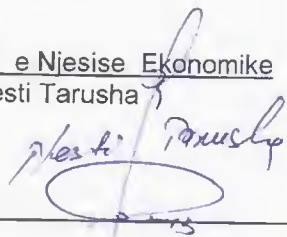 e Njesise Ekonomike
esti Tarusha
Tarusha